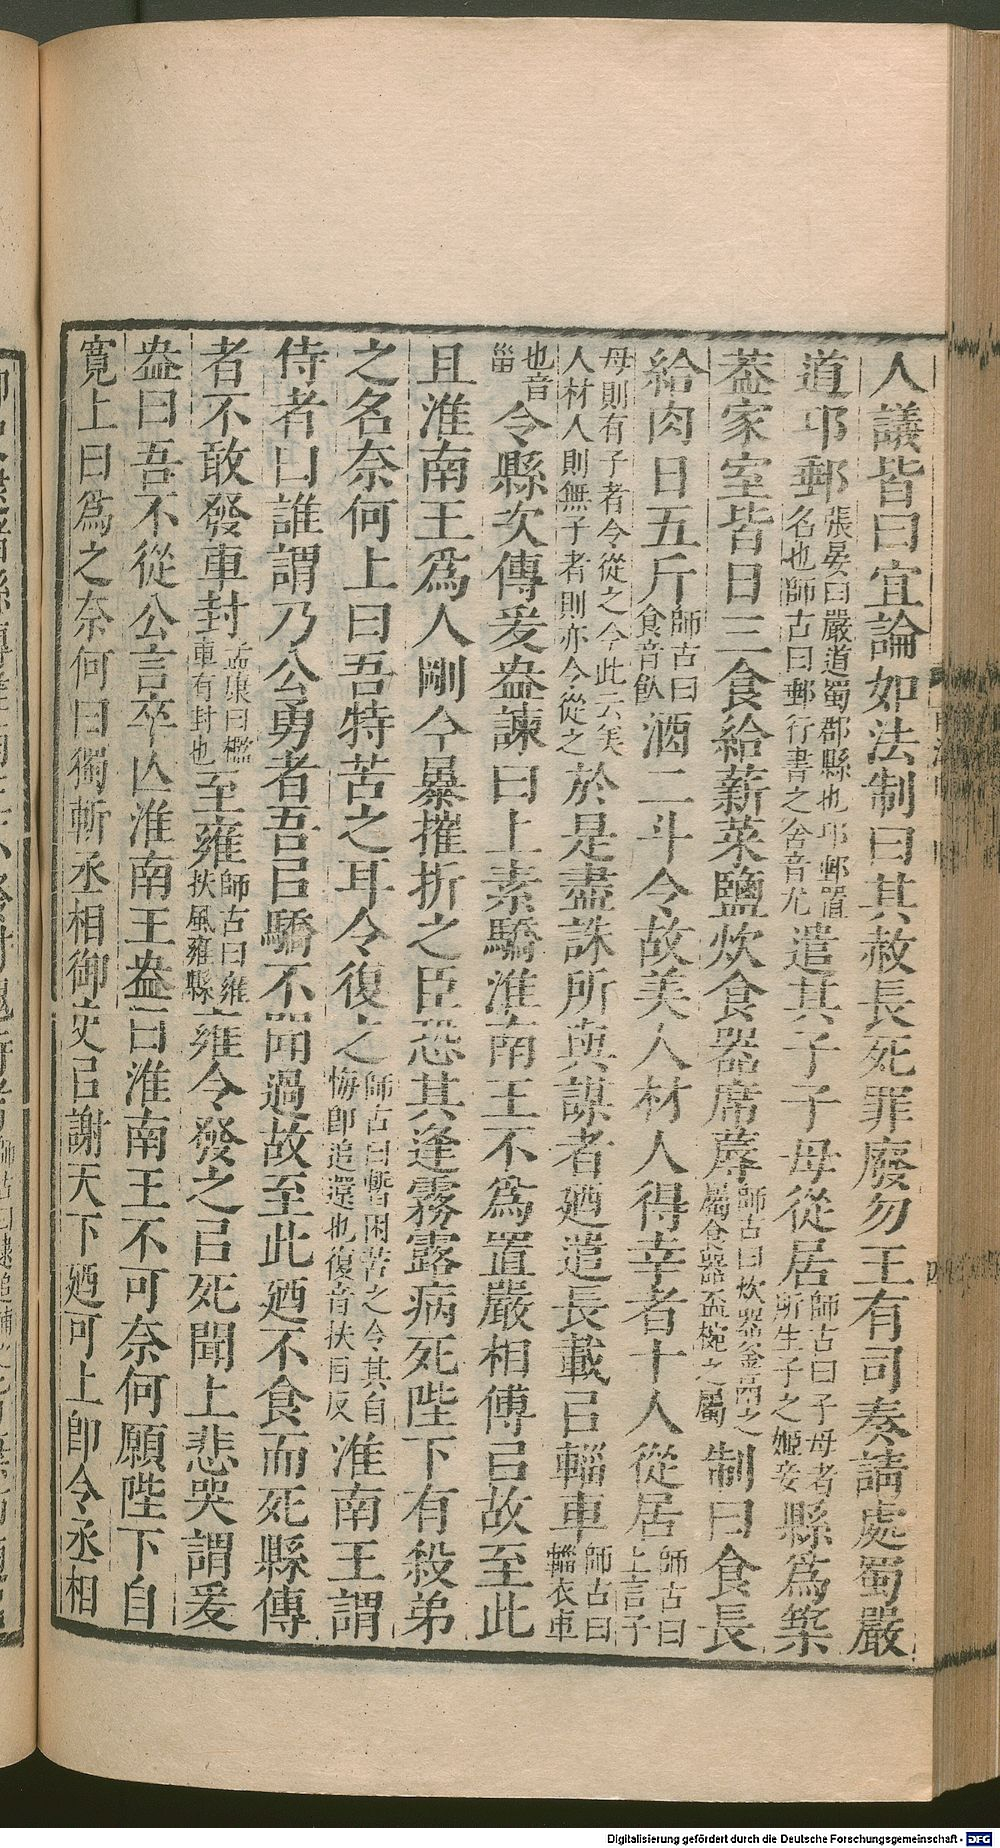 人議皆曰宜論如法制曰其赦長死罪廢勿王有司奏請處蜀嚴
道邛郵張晏曰嚴道蜀郡縣也邛郵置名也師古曰郵行書之舍音尤遣其子子母從居師古曰子母者所生子之姬妾縣爲築
蓋家室皆日三食給薪菜鹽炊食器席蓐師古曰炊器釜鬲之屬食器盃椀之屬制曰食長
給肉日五斤師古曰食音飤酒二斗令故美人材人得幸者十人從居師古曰上言子
母則有子者令從之今此云美人材人則無子者則亦令從之於是盡誅所與謀者廼遣長載㠯輜車師古曰輜衣車
也音甾令縣次傳爰盎諫曰上素驕淮南王不爲置嚴相傅㠯故至此
且淮南王爲人剛今暴摧折之臣恐其逢霧露病死陛下有殺弟
之名奈何上曰吾特苦之耳令復之師古曰暫困苦之令其自悔卽追還也復音扶目反淮南王謂
侍者曰誰謂乃公勇者吾㠯驕不聞過故至此廼不食而死縣傳
者不敢發車封孟康曰檻車有封也至雍師古曰雍扶風雍縣雍令發之㠯死聞上悲哭謂爰
盎曰吾不從公言卒亾淮南王盎曰淮南王不可奈何願陛下自
寬上曰爲之奈何曰獨斬丞相御史㠯謝天下廼可上卽令丞相
Digitalisierung gefördert durch die Deutsche Forschungsgemeinschaft - DFG